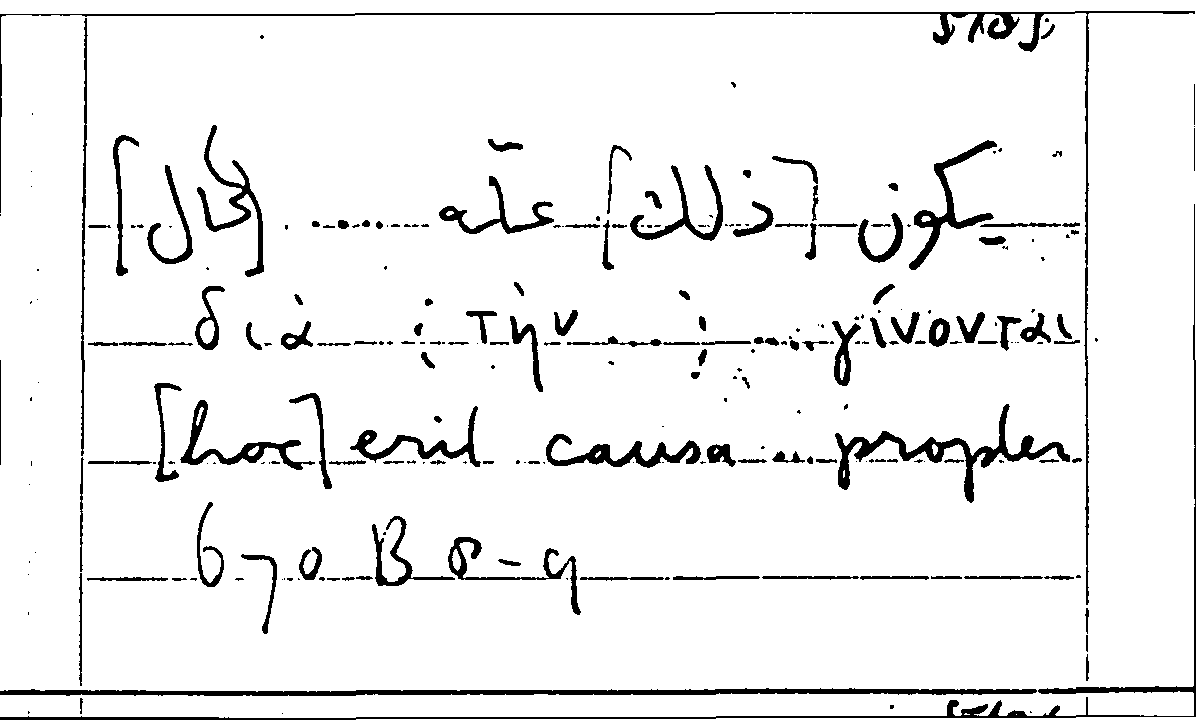 يكون [ذلك] علّة .... [لحال]
διὰ ⋮ τὴν .... ⋮ .... γίνονται
[hoc] erit causa ... propter
670 B 8-9